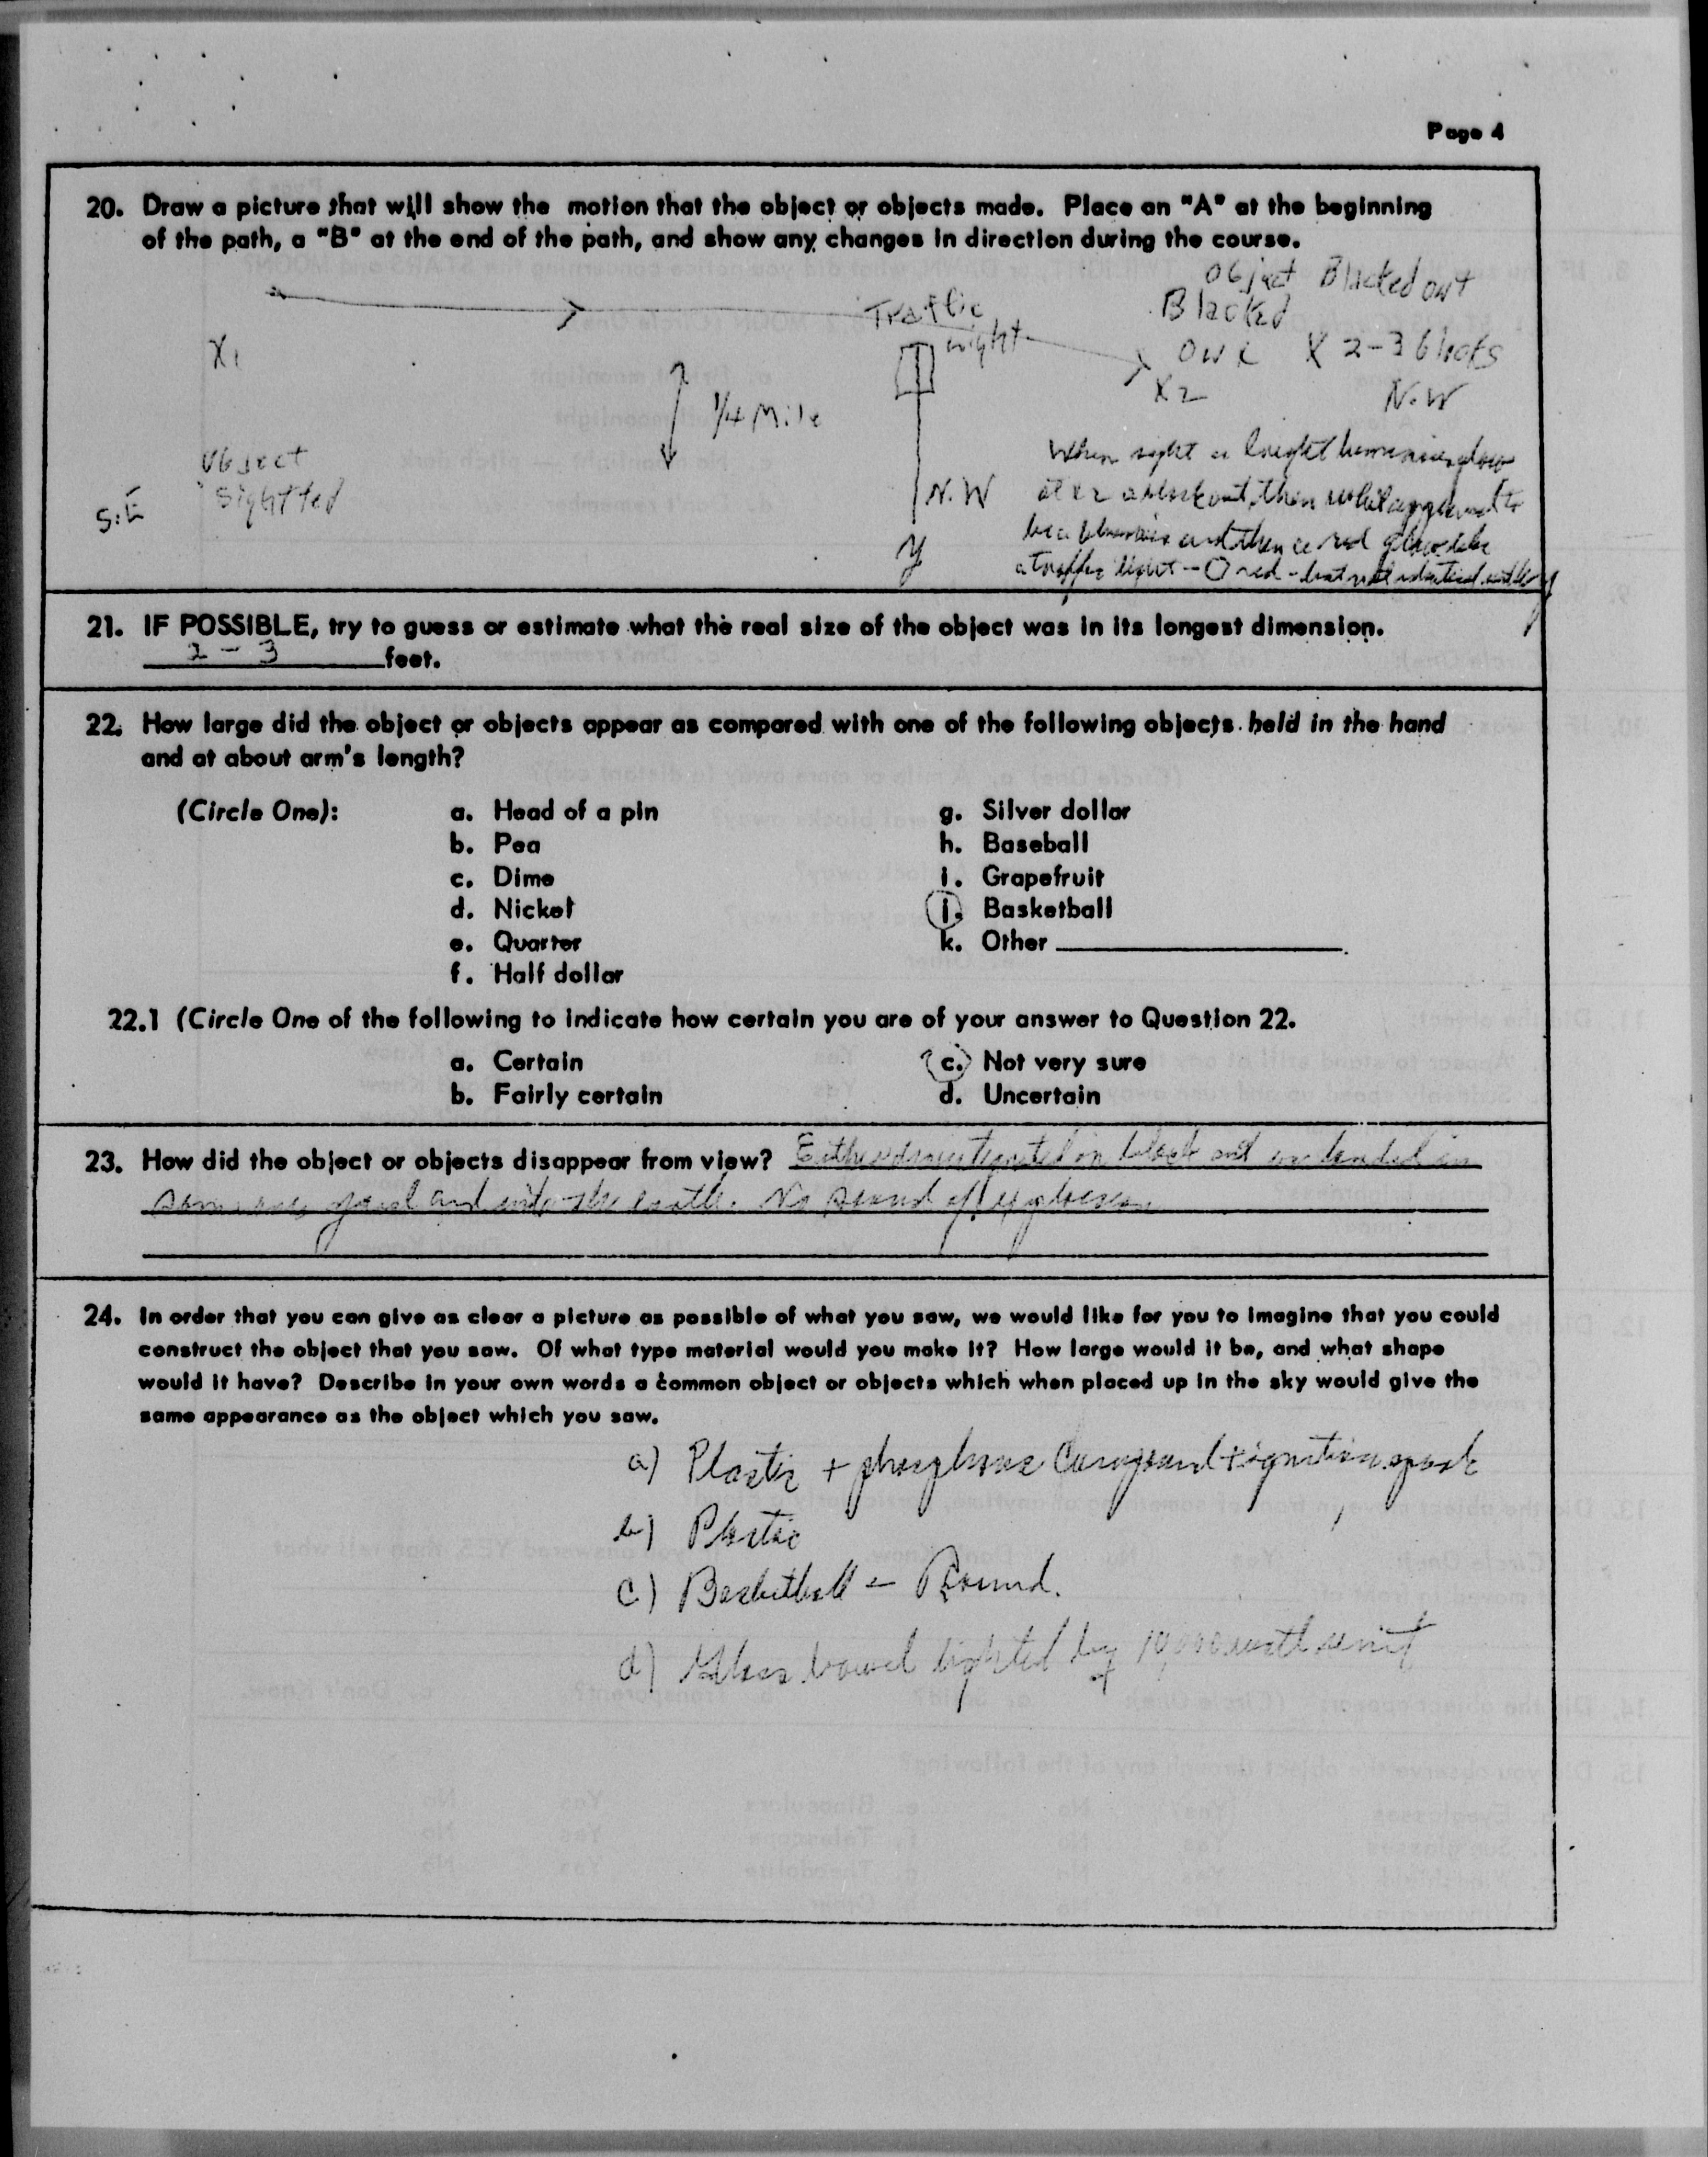 Page 4
20. Draw a picture that will show the motion that the object or objects made. Place an "A" at the beginning
of the path, a "B" at the end of the path, and show any changes in direction during the course.
Object Blacked out
Traffic Blacked
X1 out X 2-3 Ghots
X2
1/4 Mile N.W
Object
Sightted
S.E N.W
When sight a bright glow
at x2 a blackout, then
be a and then a red glow like
a traffic light - O red - but not
y
21. IF POSSIBLE, try to guess or estimate what the real size of the object was in its longest dimension.
2 - 3 feet.
22. How large did the object or objects appear as compared with one of the following objects held in the hand
and at about arm's length?
(Circle One): a. Head of a pin g. Silver dollar
b. Pea h. Baseball
c. Dime i. Grapefruit
d. Nickel j. Basketball
e. Quarter k. Other
f. Half dollar
22.1 (Circle One of the following to indicate how certain you are of your answer to Question 22.
a. Certain c. Not very sure
b. Fairly certain d. Uncertain
23. How did the object or objects disappear from view? Either disintegrated in black out or landed in
someones yard and into the earth. No sound of explosion
24. In order that you can give as clear a picture as possible of what you saw, we would like for you to imagine that you could
construct the object that you saw. Of what type material would you make it? How large would it be, and what shape
would it have? Describe in your own words a common object or objects which when placed up in the sky would give the
same appearance as the object which you saw.
a) Plastic + Compound + ignition spark
b) Plastic
c) Basketball - Round.
d) Glass bowl lighted by 10,000 watt unit